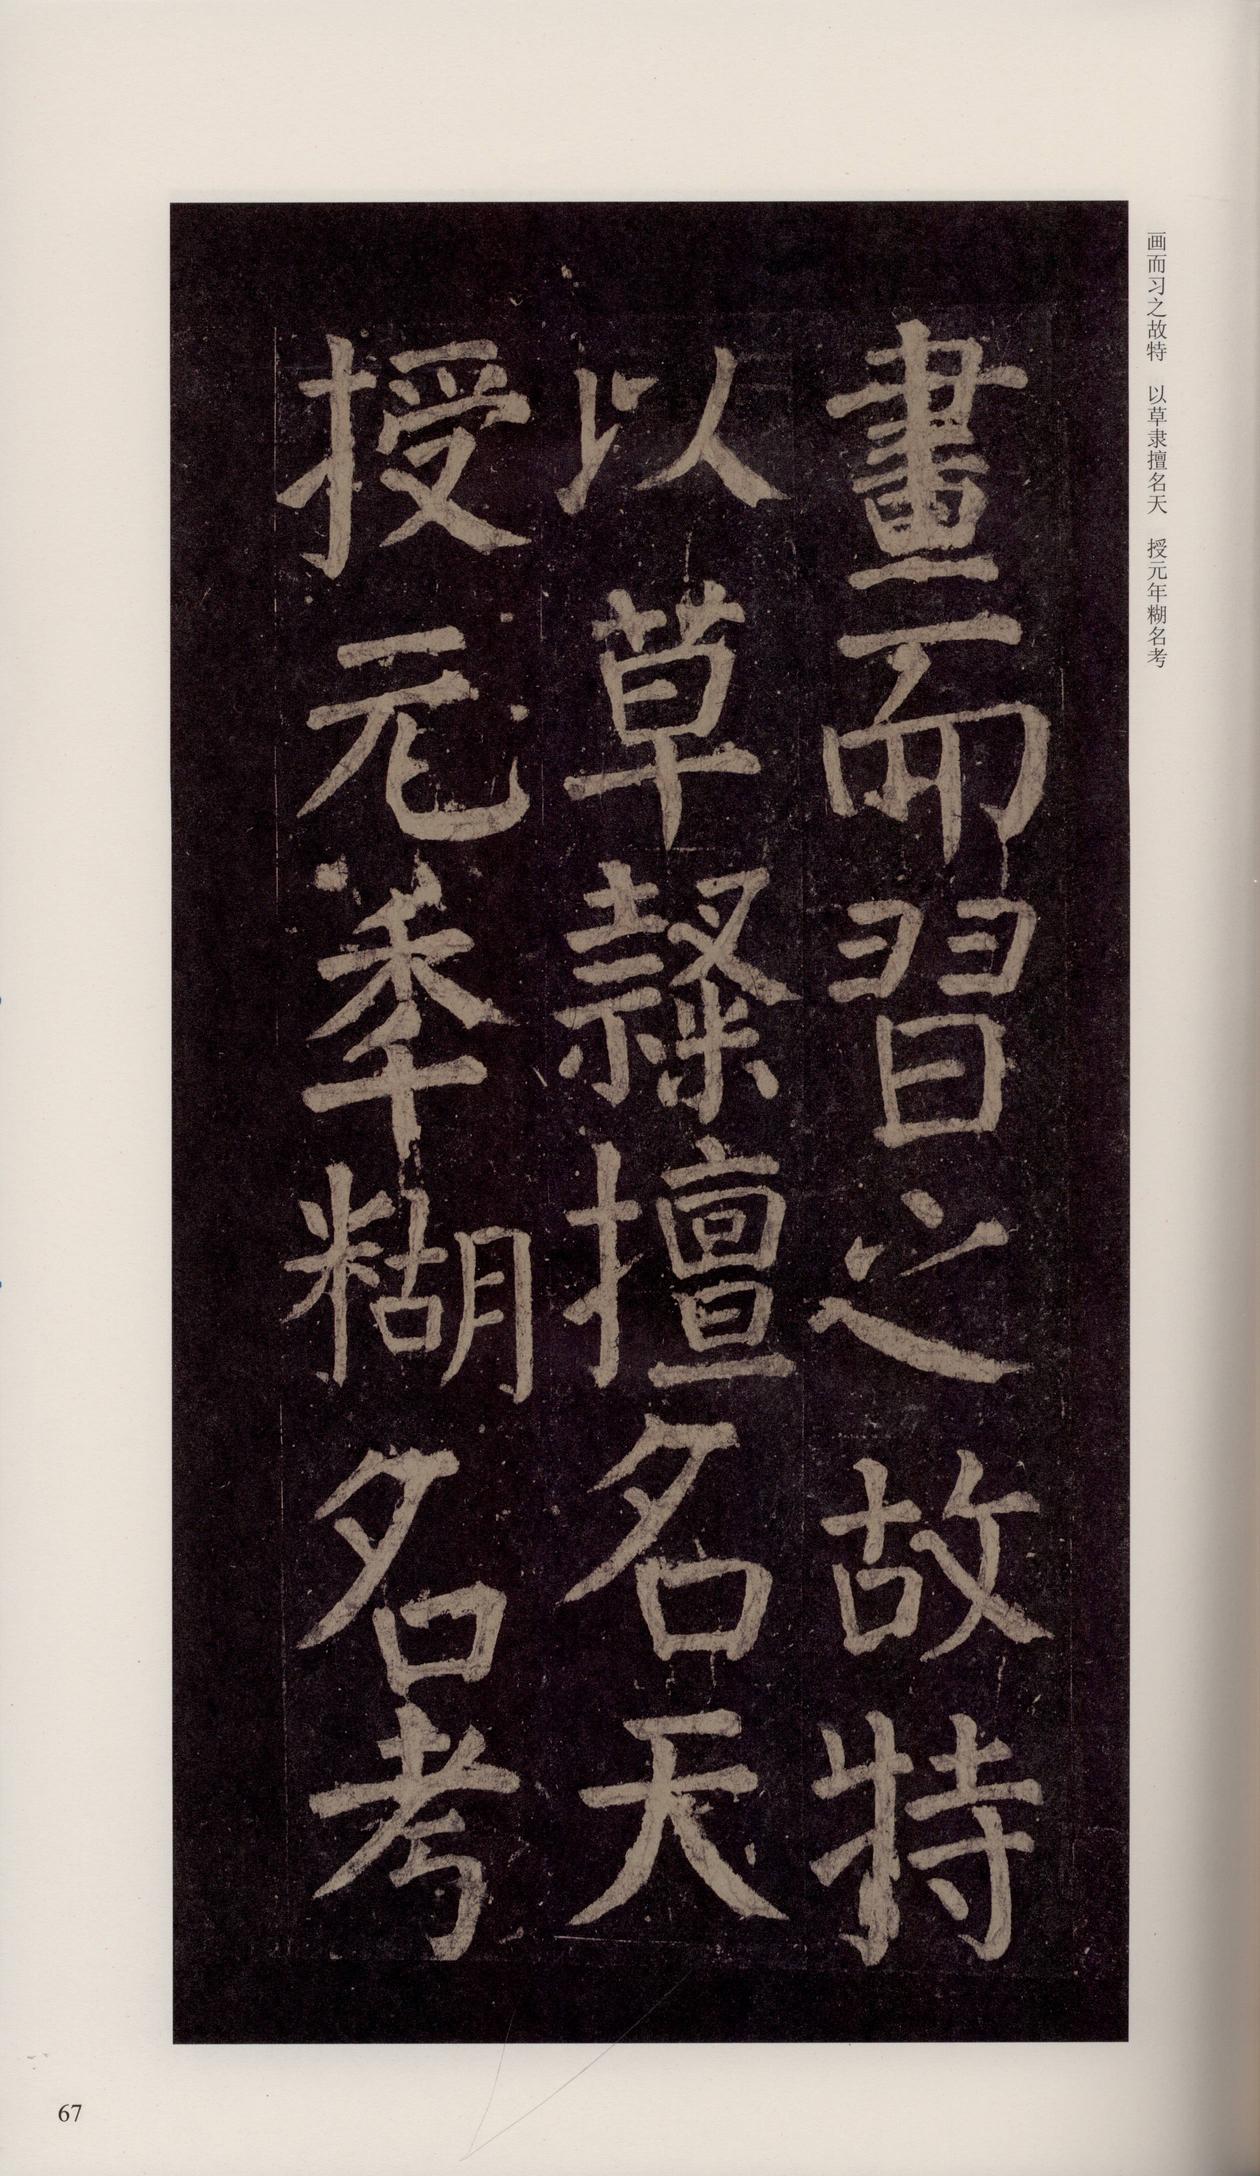 画而习之故特　以草隶擅名天　授元年糊名考
畫而習之故特
以草隸擅名天
授元秊糊名考
67